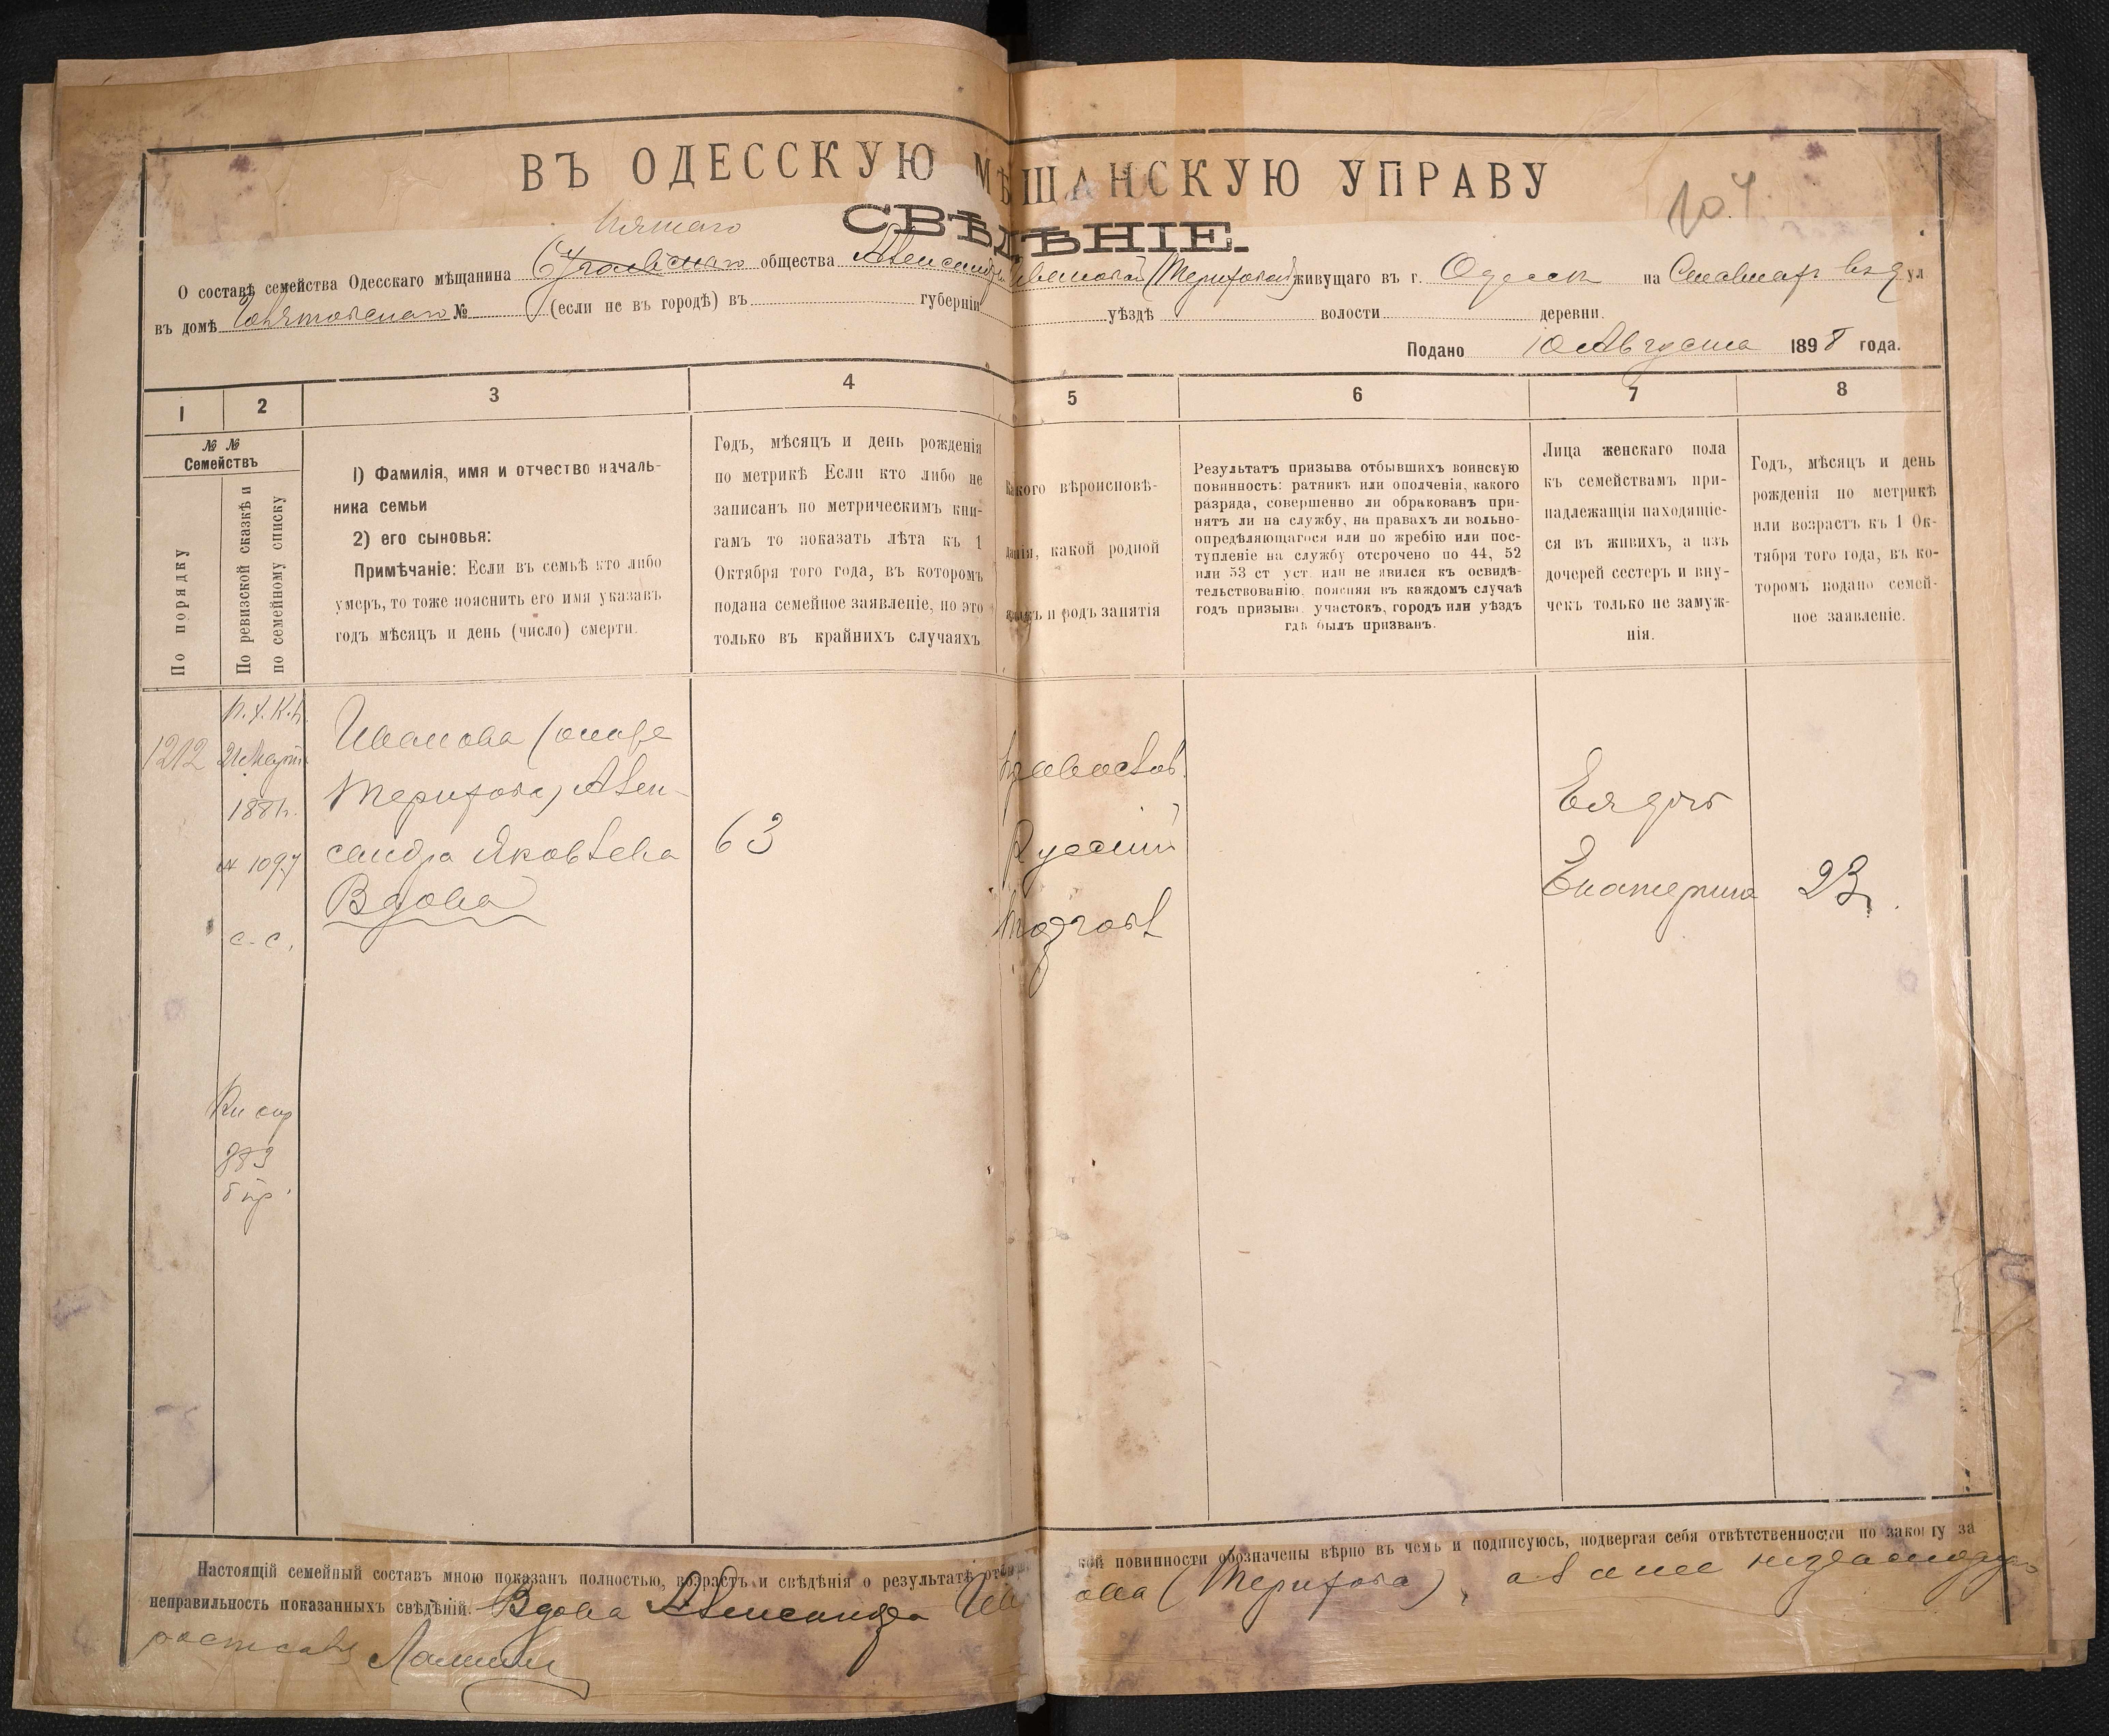 ВЪ ОДЕССКУЮ МѢЩАНСКУЮ УПРАВУ
107
СВѢДѢНІЕ.
О составѣ семейства Одесскаго мѣщанина общества Александры Ивановой (Терифовой) живущаго въ г. Одессѣ на ул
въ домѣ № (если не въ городѣ) въ губерніи уѣздѣ волости деревни.
Подано 10 Августа 1898 года.
1 2 3 4 5 6 7 8
№ №
Семействъ
По порядку
По ревизской сказкѣ и
по семейному списку
1) Фамилія, имя и отчество началь-
ника семьи
2) его сыновья:
Примѣчаніе: Если въ семьѣ кто либо
умеръ, то тоже пояснить его имя указавъ
годъ мѣсяцъ и день (число) смерти.
Годъ, мѣсяцъ и день рожденія
по метрикѣ Если кто либо не
записанъ по метрическимъ кни-
гамъ то показать лѣта къ 1
Октября того года, въ которомъ
подана семейное заявленіе, но это
только въ крайнихъ случаяхъ
Какого вѣроисповѣ-
данія, какой родной
языкъ и родъ занятія
Результатъ призыва отбывшихъ воинскую
повинность: ратникъ или ополченія, какого
разряда, совершенно ли обракованъ при-
нятъ ли на службу, на правахъ ли вольно-
опредѣляющагося или по жребію или пос-
тупленіе на службу отсрочено по 44, 52
или 53 ст уст. или не явился къ освидѣ-
тельствованію, поясняя въ каждомъ случаѣ
годъ призыва, участокъ, городъ или уѣздъ
гдѣ былъ призванъ.
Лица женскаго пола
къ семействамъ при-
надлежащія находящіе-
ся въ живихъ, а изъ
дочерей сестеръ и вну-
чекъ только не замуж-
нія.
Годъ, мѣсяцъ и день
рожденія по метрикѣ
или возрастъ къ 1 Ок-
тября того года, въ ко-
торомъ подано семей-
ное заявленіе.
1212
1881г.
№ 1097
с. с.
883
Иванова (она же
Терифова) Алек-
сандра Яковлева
Вдова
63
Православ.
Русскій
Торговл
Ея дочь
Екатерина
23
Настоящій семейный составъ мною показанъ полностью, возрастъ и свѣдѣнія о результатѣ отбы кой повинности обозначены вѣрно въ чемъ и подписуюсь, подвергая себя отвѣтственности по закону за
неправильность показанныхъ свѣдѣній. Вдова Александра Иванова (Терифова), а за нее неграмотную